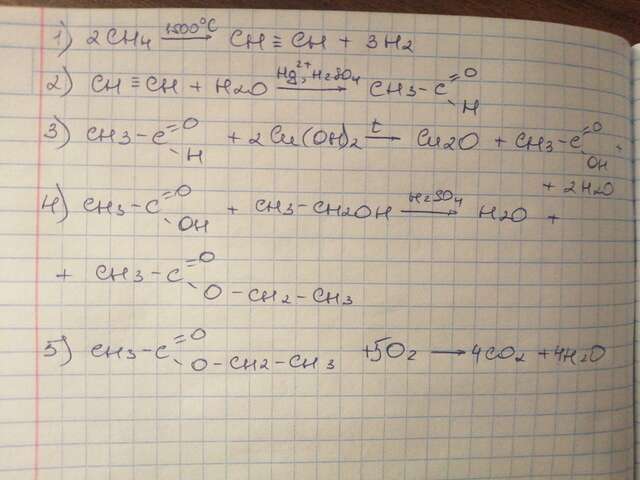 1) 2CH4 1500°C → CH ≡ CH + 3H2
2) CH ≡ CH + H2O Hg2+, H2SO4 → CH3-C =O H
3) CH3-C =O H + 2Cu(OH)2 t → Cu2O + CH3-C =O OH
+ 2H2O
4) CH3-C =O OH + CH3-CH2OH H2SO4 → H2O +
+ CH3-C =O O-CH2-CH3
5) CH3-C =O O-CH2-CH3 +5O2 → 4CO2 +4H2O